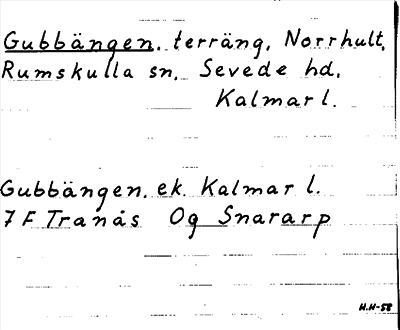 Gubbängen, terräng, Norrhult,
Rumskulla sn, Sevede hd,
Kalmar l.
Gubbängen, ek. Kalmar l.
7 F Tranås Og Snararp
H.H-58